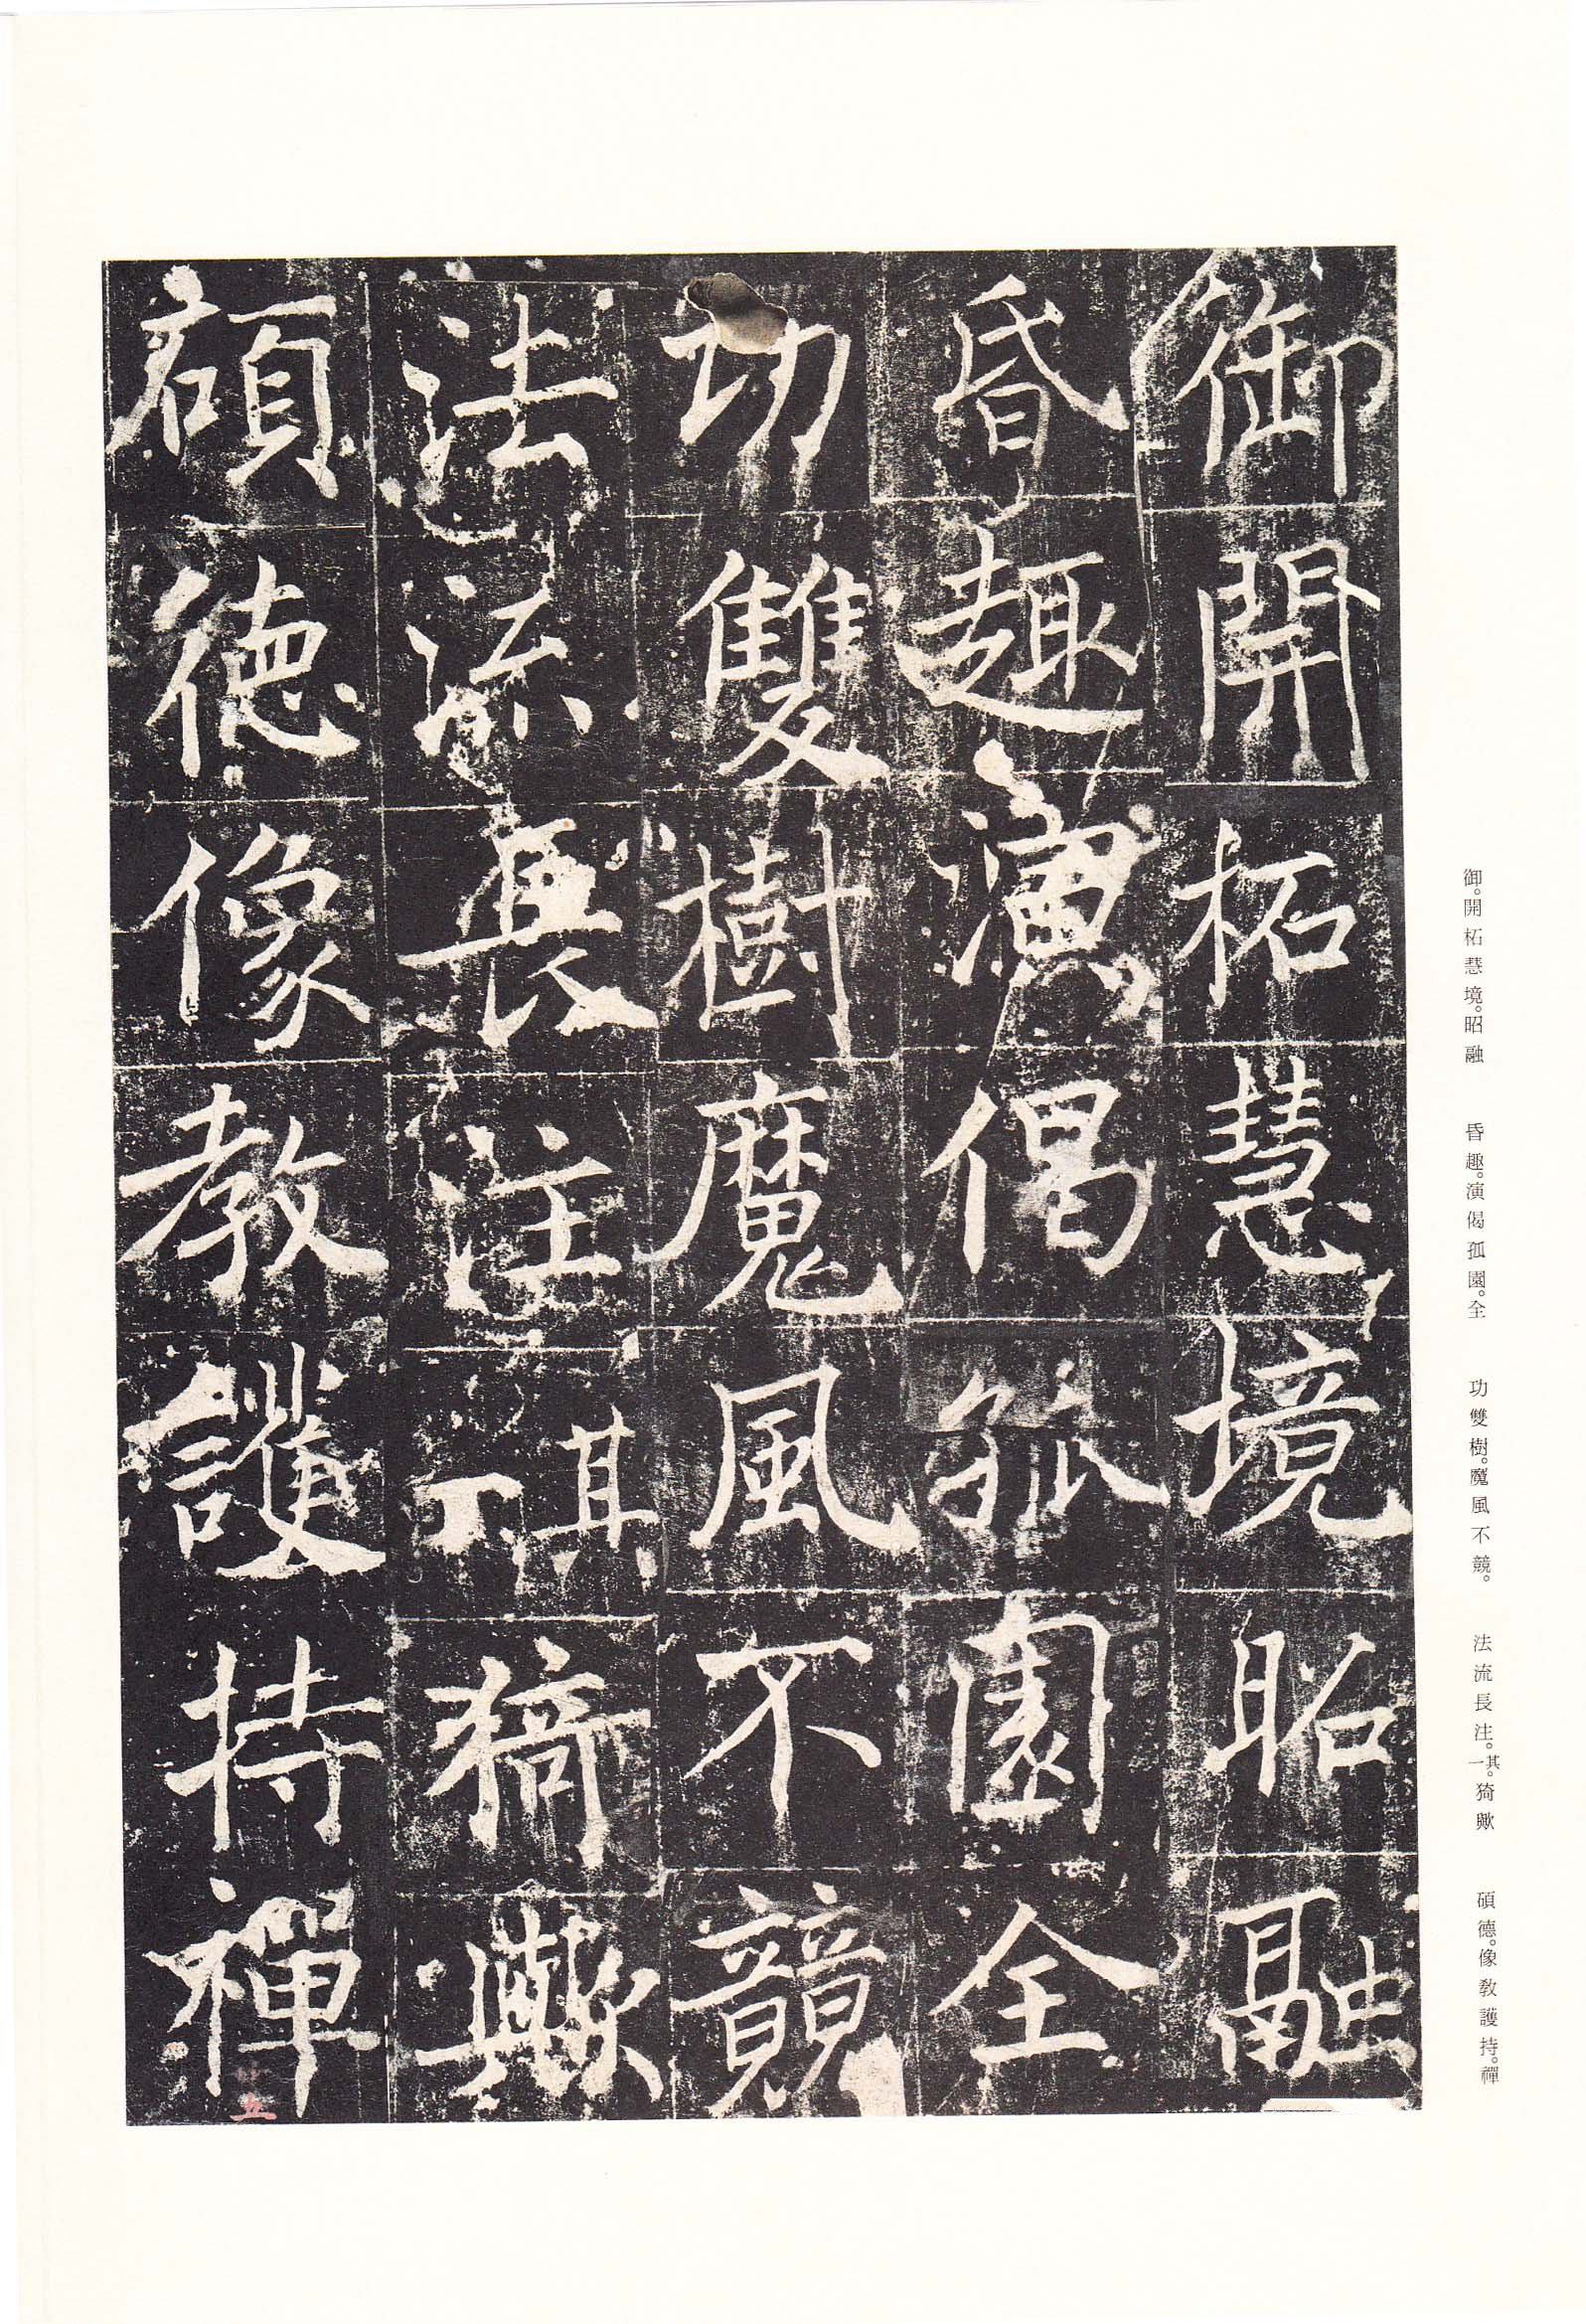 御開柘慧境昭融
昏趣演偈孤園全
功雙樹魔風不競
法流長注其一猗歟
碩德像教護持禪
五
御。開柘慧境。昭融　昏趣。演偈孤園。全　功雙樹。魔風不競。　法流長注。其一。猗歟　碩德。像教護持。禪